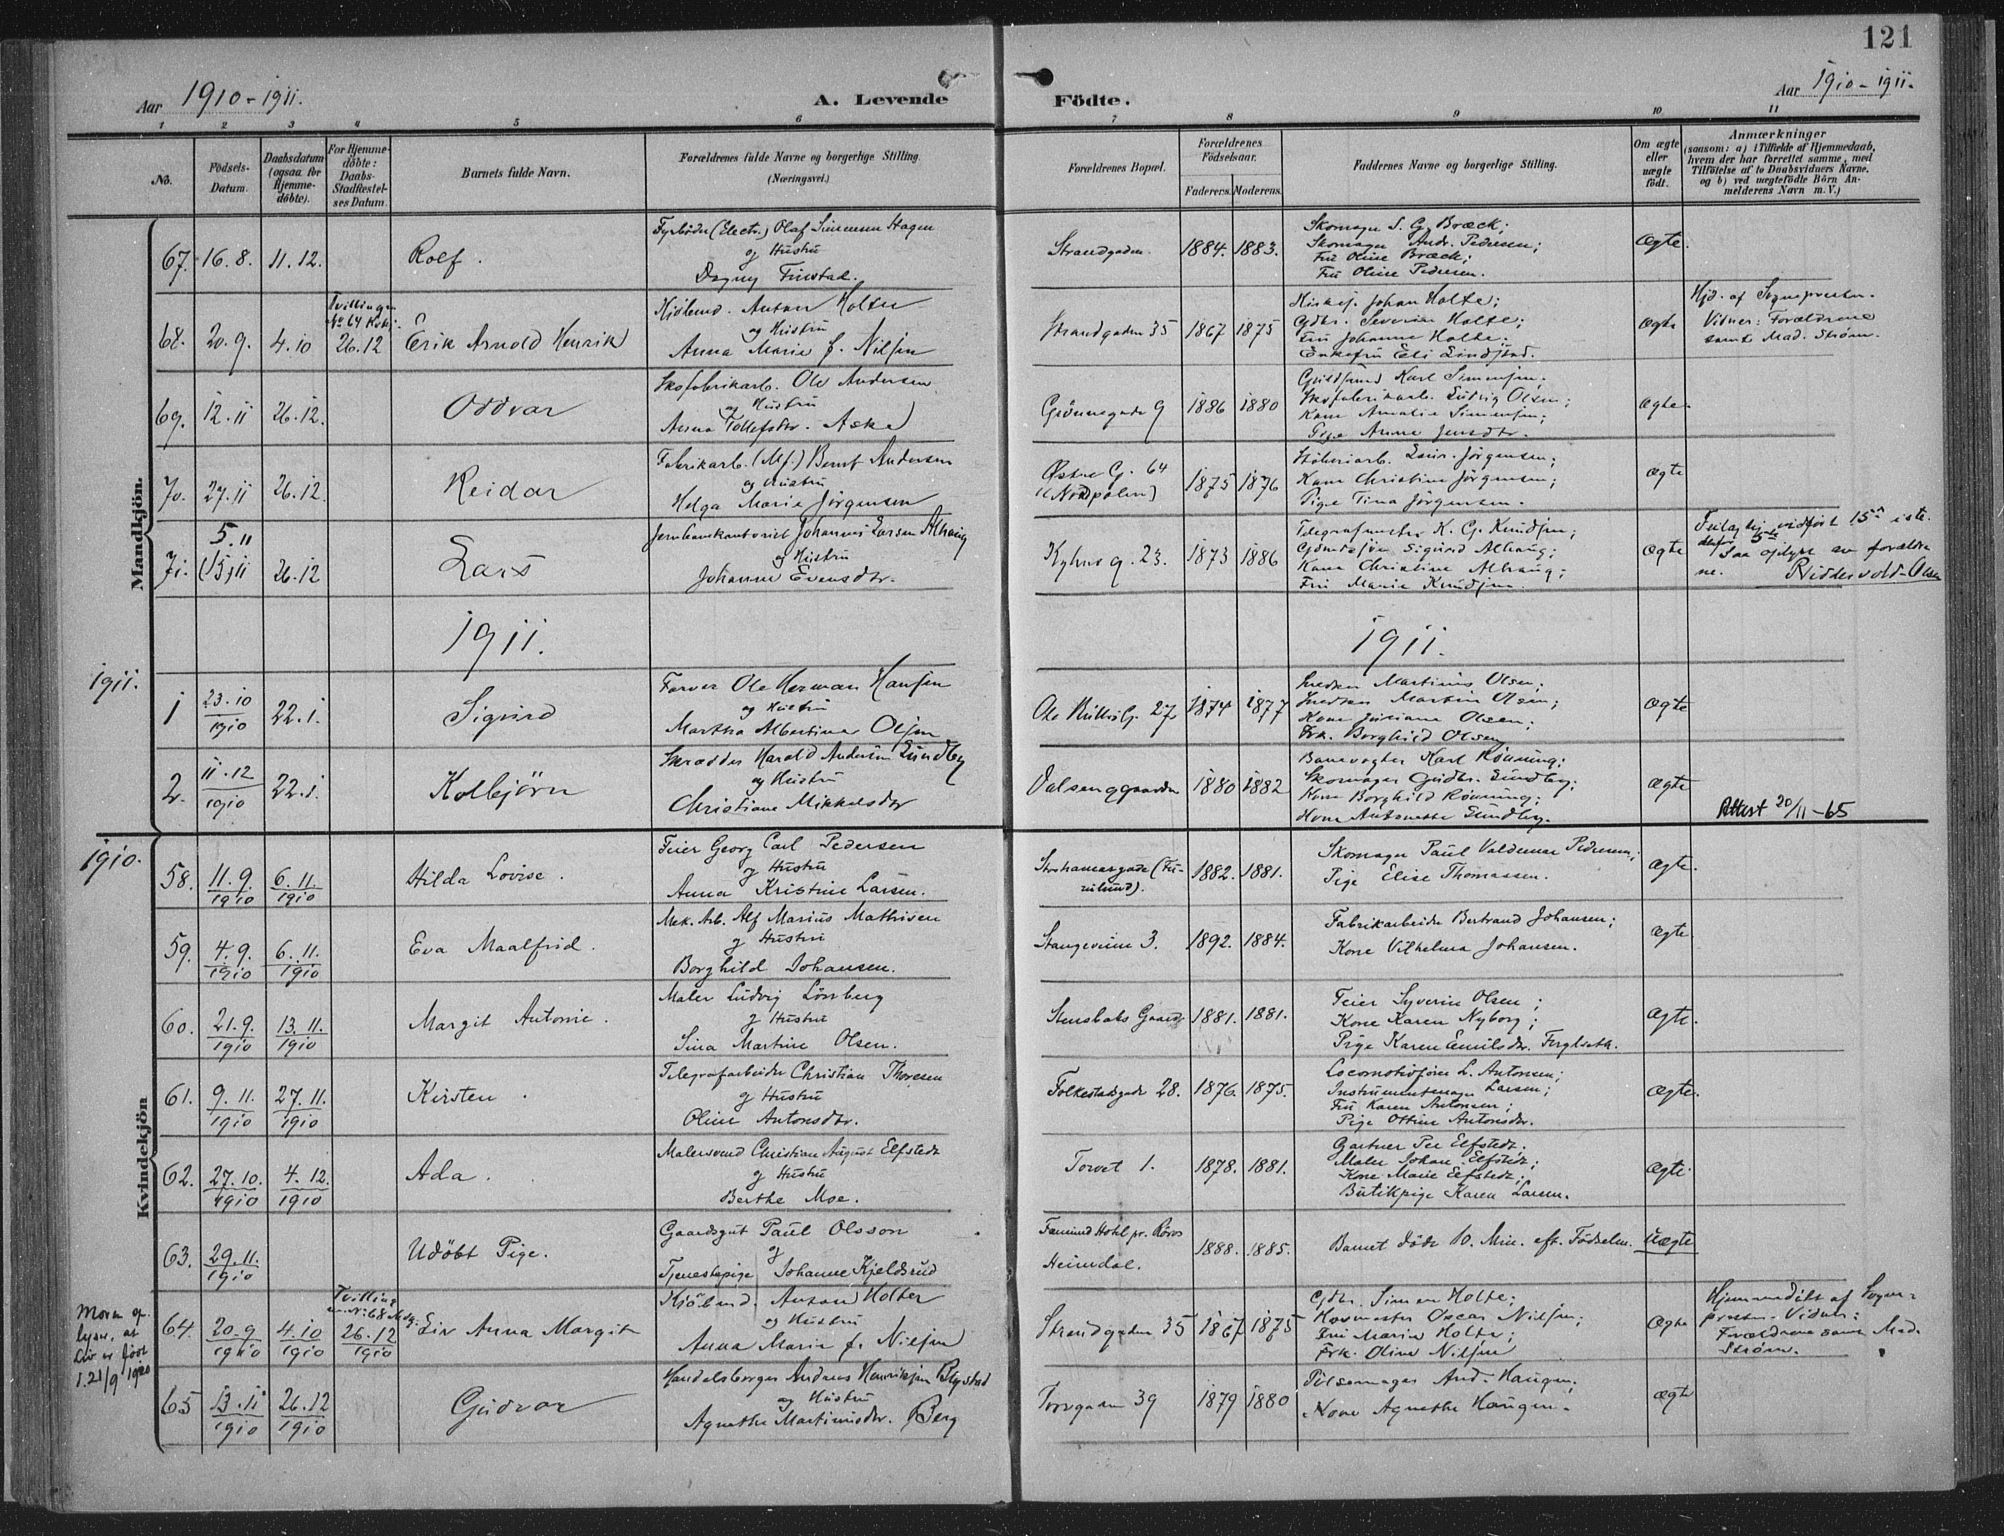 121
Aar 1910-1911.
A. Levende Födte.
Aar 1910-1911.
1 2 3 4 5 6 7 8 9 10 11
No.
Födsels-Datum.
Daabsdatum (ogsaa for Hjemme-döbte).
For Hjemme-döbte: Daabs-Stadfæstel-ses Datum.
Barnets fulde Navn.
Forældrenes fulde Navne og borgerlige Stilling.
(Næringsvei.)
Forældrenes Bopæl.
Forældrenes Födselsaar.
Faderens. Moderens.
Faddernes Navne og borgerlige Stilling.
Om ægte eller uægte födt.
Anmærkninger
(saasom: a) i Tilfælde af Hjemmedaab,
hvem der har forrettet samme, med
Tilföielse af to Daabsvidners Navne.
og b) ved uægtefödte Börn An-
melderens Navn m. V.)
Mandkjön.
67. 16.8. 11.12. Rolf.
Fyrböder (Electr.) Olaf Simensen Hagen
og Hustru
Dagny Finstad.
Strandgaden. 1884. 1883.
Skomager S. G. Bræck;
Skomager Andr. Pedersen;
Fru Oline Bræck;
Fru Oline Pedersen.
Ægte.
68. 20.9. 4.10
Tvilling
No 64 Kvkj.
26.12
Erik Arnold Henrik
Kjöbmd. Anton Holter
og Hustru
Anna Marie f. Nilsen
Strandgaden 35 1867 1875
Johan Holte;
Gdbr. Severin Holte;
Fru Johanne Holte;
Enkefru Eli Lindstad.
Ægte
Hjd. af Sognepresten.
Vidner: Forældrene
samt Mad. Strøm.
69. 12.11 26.12. Oddvar
Skofabrikarb. Ole Andersen
og Hustru
Anna Tollefsdtr. Aske
Grönnegade 9 1886 1880
Karl Simensen;
Skofabrikarb. Ludvig Olsen;
Kone Amalie Simensen;
Pige Anna Jensdtr.
Ægte.
70. 27.11 26.12. Reidar
Fabrikarb. (Mf.) Bernt Andersen
og Hustru
Helga Marie Jörgensen
Østre G. 64
(Nordpolen)
1875 1876
Laur. Jörgensen;
Kone Christine Jörgensen;
Pige Tina Jörgensen.
Ægte
71. 5.11 (15.11 26.12 Lars
Jernbanekontorist Johannes Larsen Alhaug
og Hustru
Johanne Evensdtr.
Kyhns g. 23. 1873 1886
Telegrafmester K. G. Knudsen;
Sigurd Alhaug;
Kone Christine Alhaug;
Fru Marie Knudsen.
Ægte
Feilagtig vidført 15de iste-
detfor 5te
Saa oplyst av forældre
ne. Riddervold-Olsen
1911. 1911.
1911.
1 23.10/1910 22.1. Sigurd
Farver Ole Herman Hansen
og Hustru
Martha Albertine Olsen
Ole Rülls G. 27. 1874 1877
Snedker Martinius Olsen;
Snedker Martin Olsen;
Kone Juliane Olsen;
Frk. Borghild Olsen
Ægte
2. 11.12/1910 22.1. Kolbjörn
Skrædder Harald Andersen Lundby
og Hustru
Christiane Mikkelsdtr
Valsenggaarden 1880 1882
Banevogter Karl Rönning;
Skomager Gudbr. Lundby;
Kone Borghild Rönning;
Kone Antonette Lundby.
Ægte
Attest 20/11-65
1910.
Kvindekjön
58. 11.9./1910 6.11./1910 Hilda Lovise.
Feier Georg Carl Pedersen
og Hustru
Anna Kristine Larsen.
Storhamargade (Fu-
rulund). 1882. 1881.
Skomager Paul Valdemar Pedersen;
Pige Elise Thomassen.
Ægte.
59. 4.9./1910 6.11./1910 Eva Maalfrid.
Mek. Arb. Alf Marius Mathisen
og Hustru
Borghild Johansen.
Stangeveien 3. 1892. 1884.
Fabrikarbeider Bertrand Johansen;
Kone Vilhelma Johansen.
Ægte
60. 21.9./1910 13.11./1910 Margit Antonie.
Maler Ludvig Lönberg
og Hustru
Sina Martine Olsen.
Stensbats Gaard. 1881. 1881.
Feier Syverin Olsen;
Kone Karen Nyborg;
Pige Karen Emilsdtr.
Ægte.
61. 9.11./1910 27.11./1910 Kirsten.
Telegrafarbeider Christian Thoresen
og Hustru
Oline Antonsdtr.
Folkestadgade 28. 1876. 1875.
Locomotivförer L. Antonsen;
Instrumentmager Larsen;
Fru Karen Antonsen;
Pige Ottine Antonsdtr.
Ægte.
62. 27.10./1910 4.12./1910 Ada.
Malersvend Christian August Elfstedt
og Hustru
Berthe Moe.
Torvet 1. 1878. 1881.
Gartner Per Elfstedt;
Maler Johan Elfstedt;
Kone Marie Elfstedt;
Butikpige Karen Larsen.
Ægte.
63. 29.11./1910 Udöbt Pige.
Gaardsgut Paul Olsson
og
Tjenestepige Johanne Kjeldsrud
Fæmund Hotel pr. Röros
Heimdal. 1888. 1885.
Barnet döde 10 Min. eft. Födselen.
Uægte
Moren op-
lyser, at
Liv er født
1. 21/9 1910
64. 20.9/1910 4.10/1910
Tvilling
m No 68 Mkj.
26.12/1910
Liv Anna Margit
Kjöbmd. Anton Holter
og Hustru
Anna Marie f. Nilsen
Strandgaden 35 1867 1875
Gdbr. Simen Holte;
Hovmester Oscar Nilsen;
Fru Marie Holte;
Frk. Oline Nilsen
Ægte
Hjemmedöbt af Sogne-
presten. Vidner:
Forældrene samt Mad.
Strøm.
65 13.11/1910 26.12/1910 Gudvor
Handelsborger Andreas Henriksen Blystad
og Hustru
Agnethe Martinusdtr. Berg
Torvgaden 39 1879 1880
Pölsemager And. Haugen;
Kone Agnethe Haugen.
Ægte